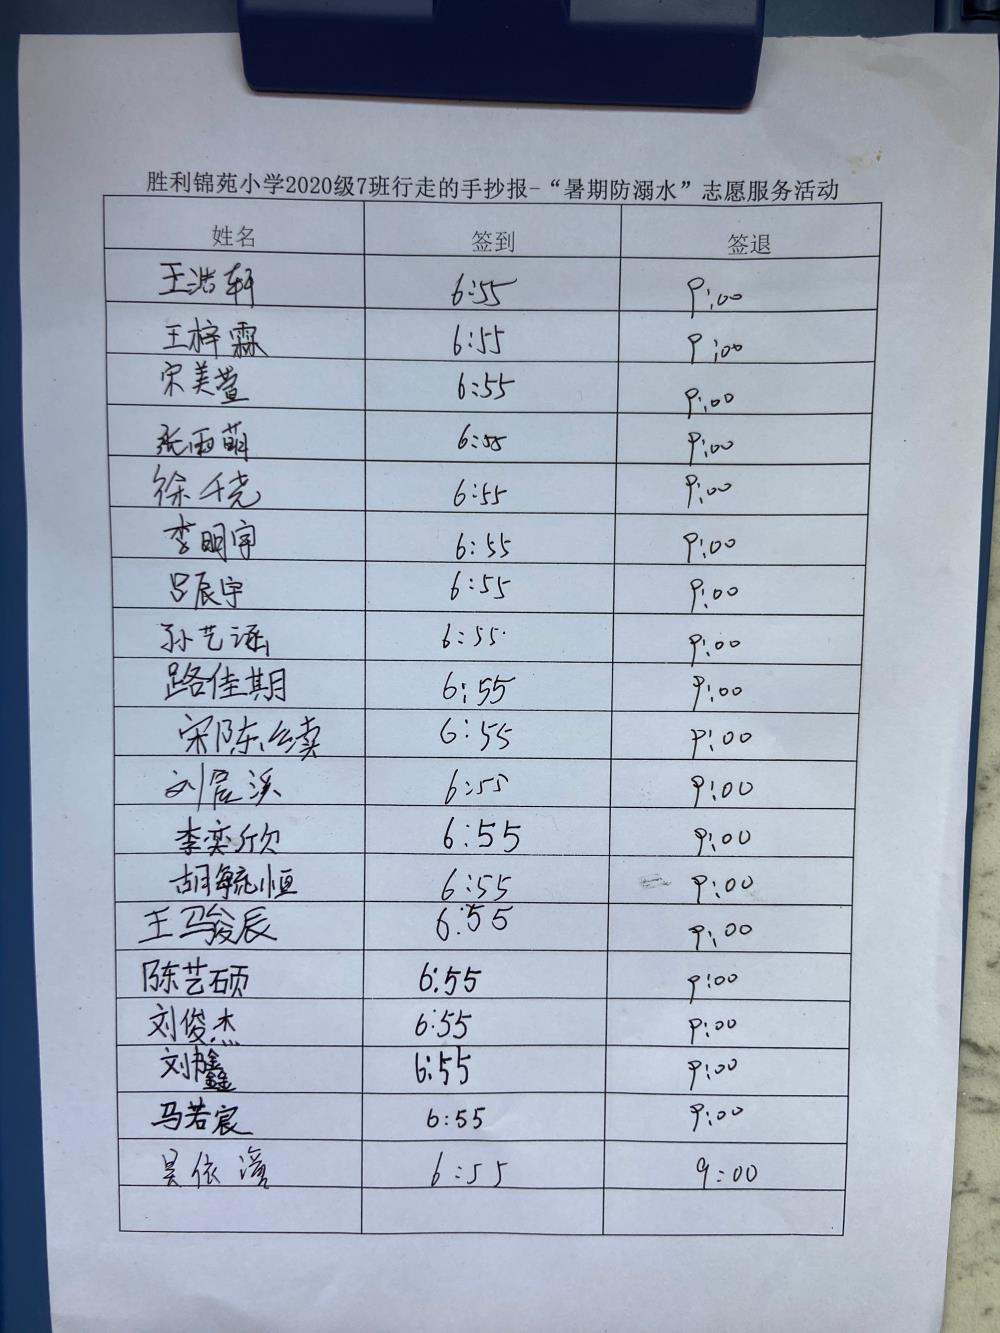 胜利锦苑小学2020级7班行走的手抄报-“暑期防溺水”志愿服务活动
姓名 签到 签退
王浩轩 6:55 9:00
王梓霖 6:55 9:00
宋美萱 6:55 9:00
张雨萌 6:55 9:00
徐千尧 6:55 9:00
李明宇 6:55 9:00
吕辰宇 6:55 9:00
孙艺谣 6:55 9:00
路佳期 6:55 9:00
宋陈绘 6:55 9:00
刘宸溪 6:55 9:00
李奕欣 6:55 9:00
胡毓恒 6:55 9:00
王骏辰 6:55 9:00
陈艺硕 6:55 9:00
刘俊杰 6:55 9:00
刘鑫 6:55 9:00
马若宸 6:55 9:00
吴依 6:55 9:00